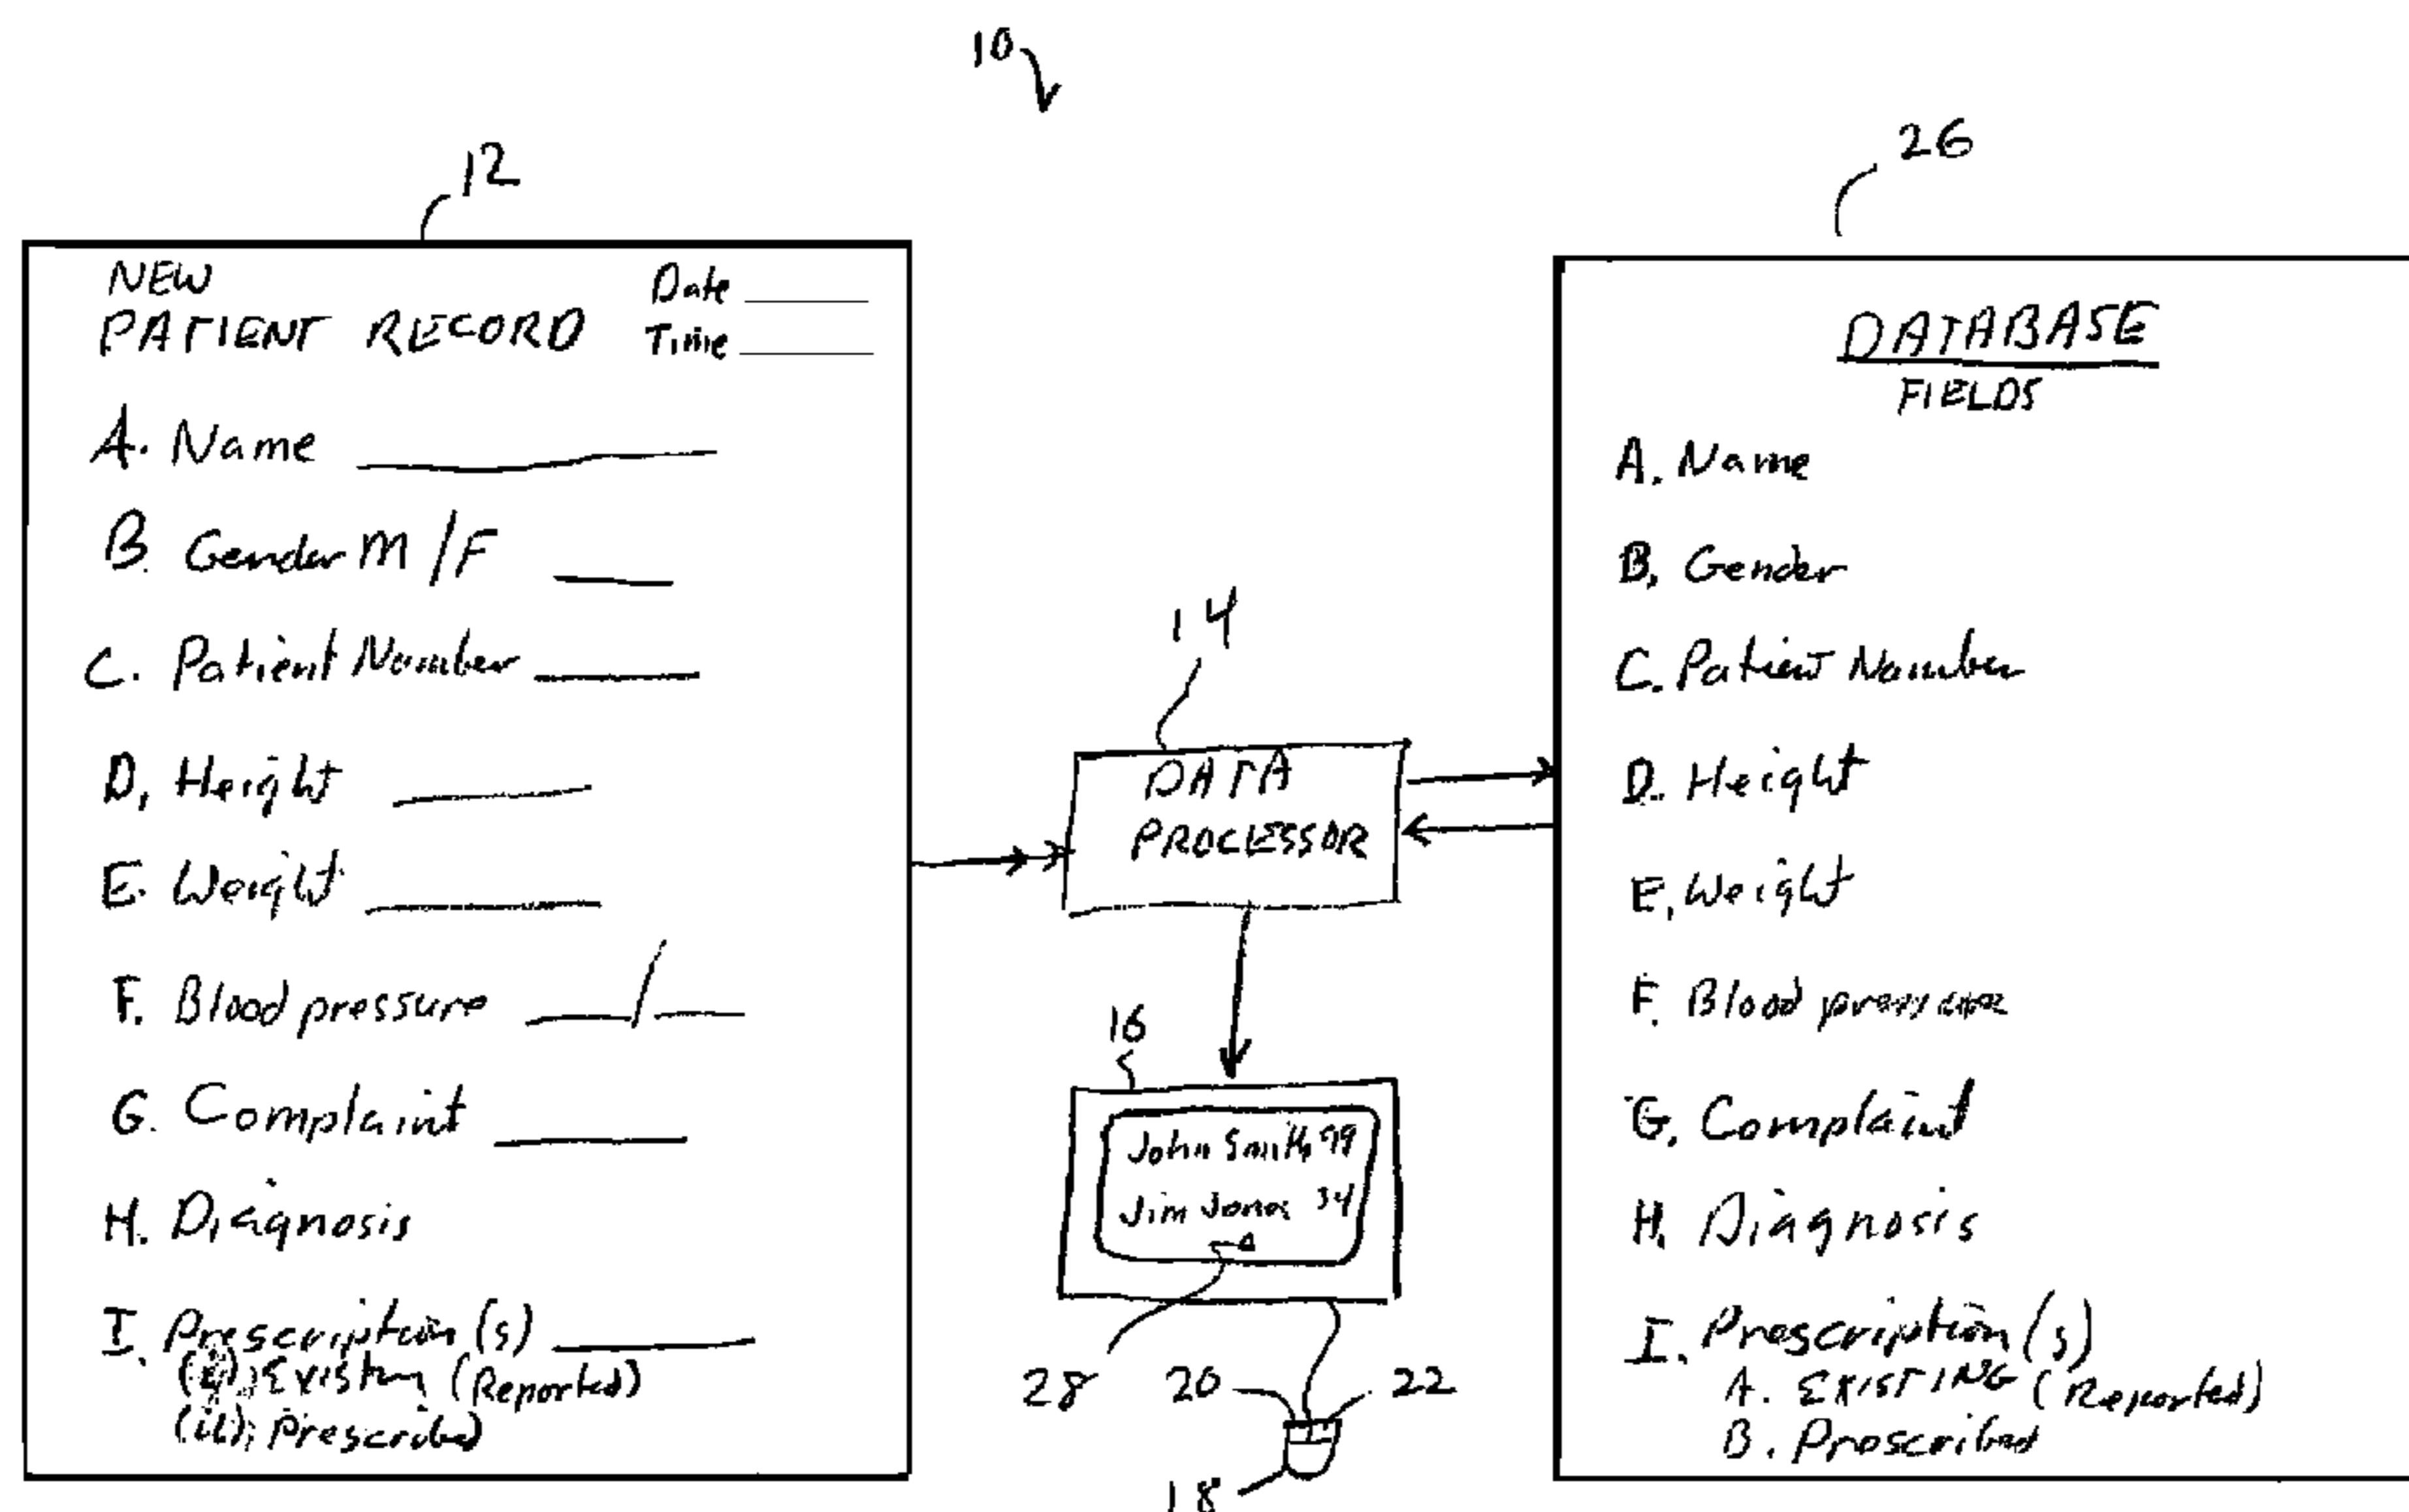 10
12
NEW
PATIENT RECORD
Date
Time
A. Name
B. Gender M/F
C. Patient Number
D. Height
E. Weight
F. Blood pressure __/__
G. Complaint
H. Diagnosis
I. Prescription(s)
Existing (Reported)
(ii) Prescribed
14
DATA
PROCESSOR
16
John Smith
Jim Jones 34
28
20
22
18
26
DATABASE
FIELDS
A. Name
B. Gender
C. Patient Number
D. Height
E. Weight
F. Blood pressure
G. Complaint
H. Diagnosis
I. Prescription(s)
A. EXISTING (Reported)
B. Prescribed